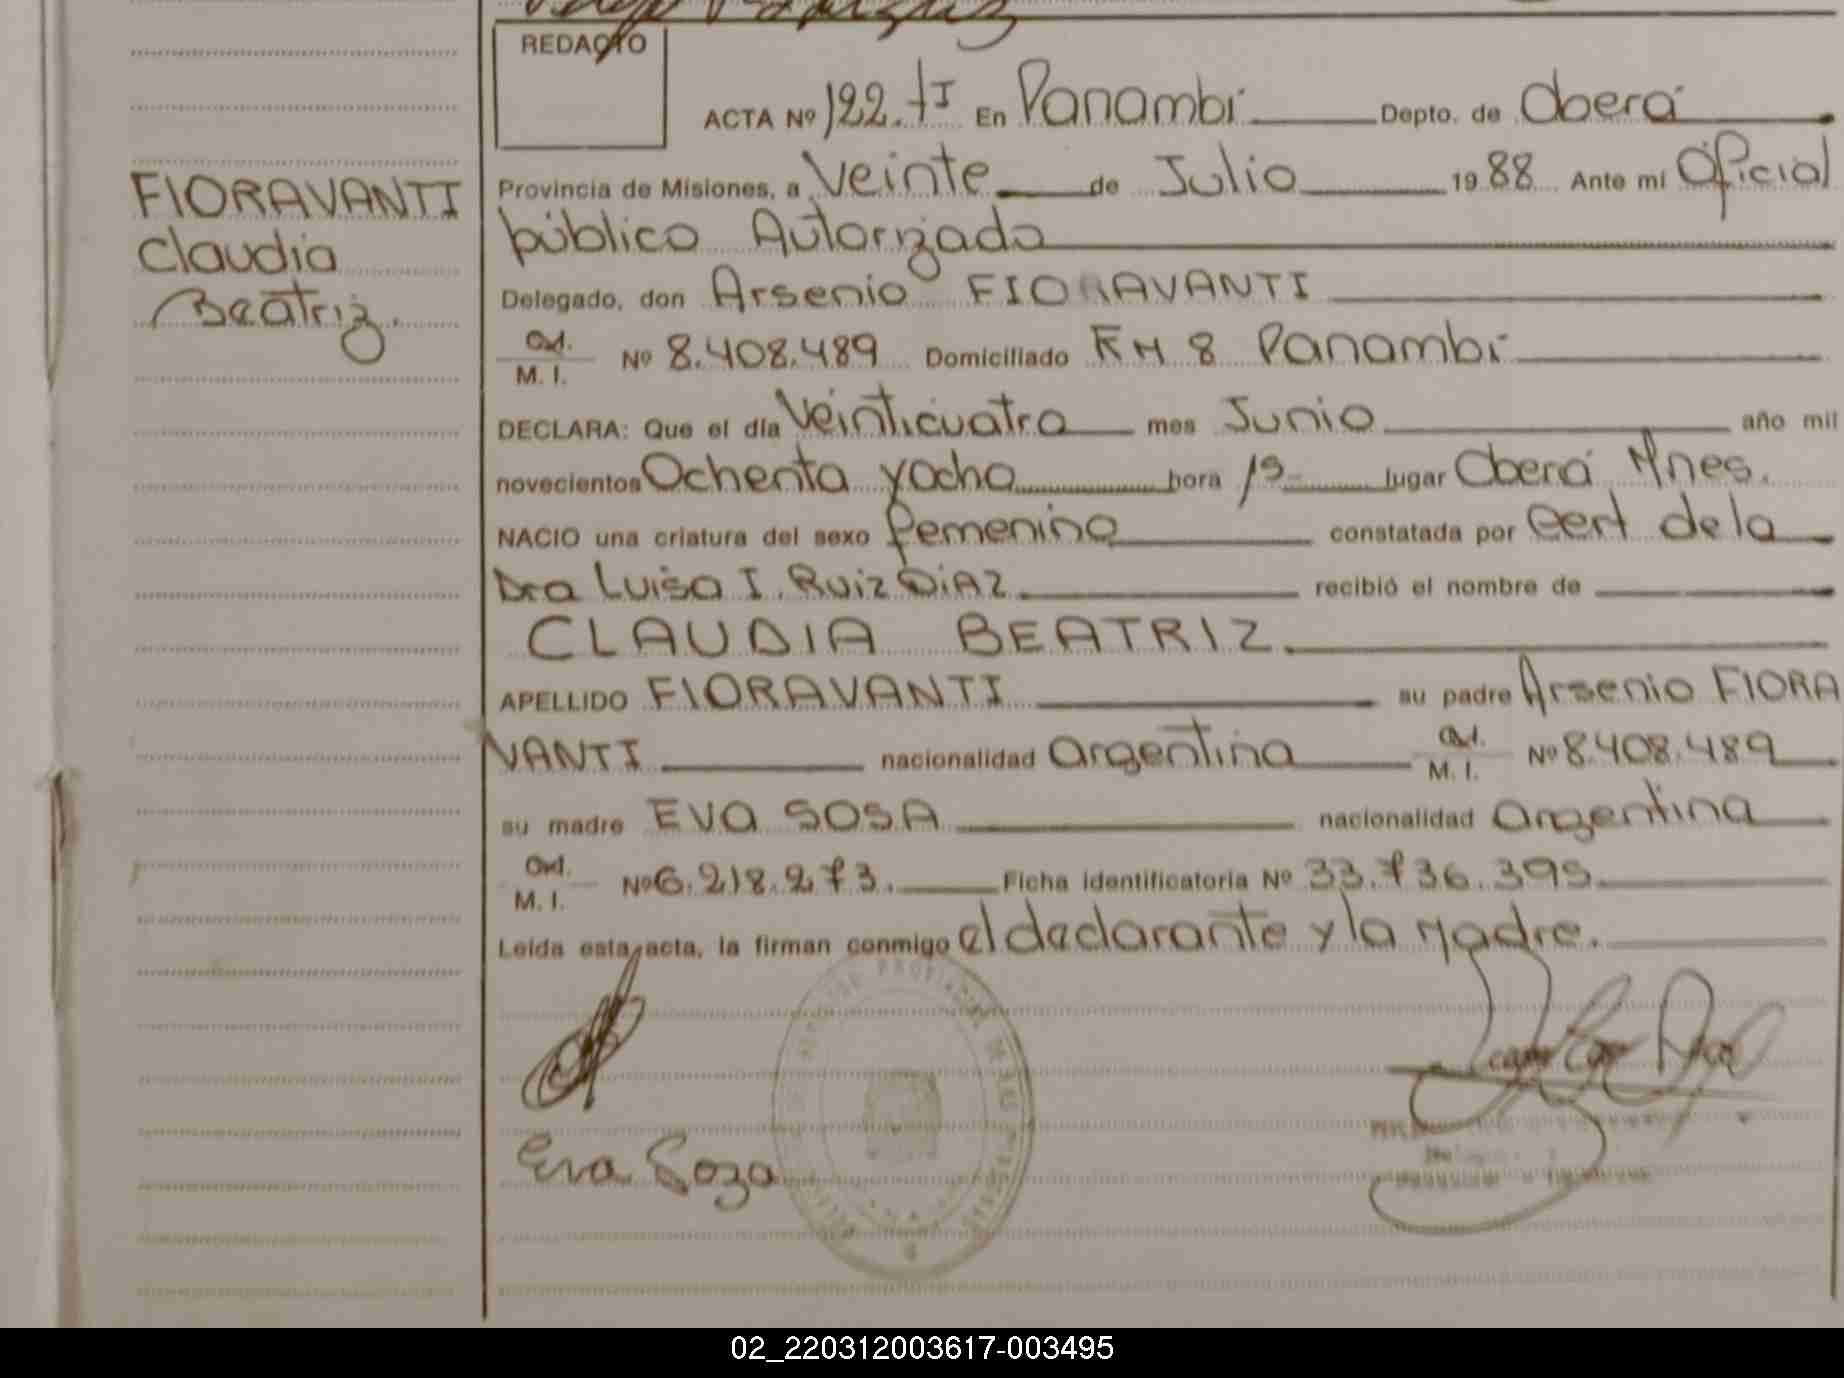 REDACTO
ACTA Nº 122. tI En Panambí Depto. de Oberá
FIORAVANTI
Claudia
Beatriz.
Provincia de Misiones, a Veinte de Julio 19 88 Ante mí Oficial
público Autorizado
Delegado, don Arsenio FIORAVANTI
M. I. Nº 8.408.489 Domiciliado KM 8 Panambí
DECLARA: Que el día Veinticuatro mes Junio año mil
novecientos Ochenta y ocho hora lugar Oberá Mnes.
NACIO una criatura del sexo femenino constatada por Cert de la
Dra Luisa I. Ruiz DiAZ recibió el nombre de
CLAUDIA BEATRIZ
APELLIDO FIORAVANTI su padre Arsenio FIORA
VANTI nacionalidad argentina M. I. Nº 8.408.489
su madre EVA SOSA nacionalidad argentina
M. I. Nº 6.218.273. Ficha identificatoria Nº 33.736.395
Leída esta acta, la firman conmigo el declarante y la Madre.
Eva Soza
02_220312003617-003495